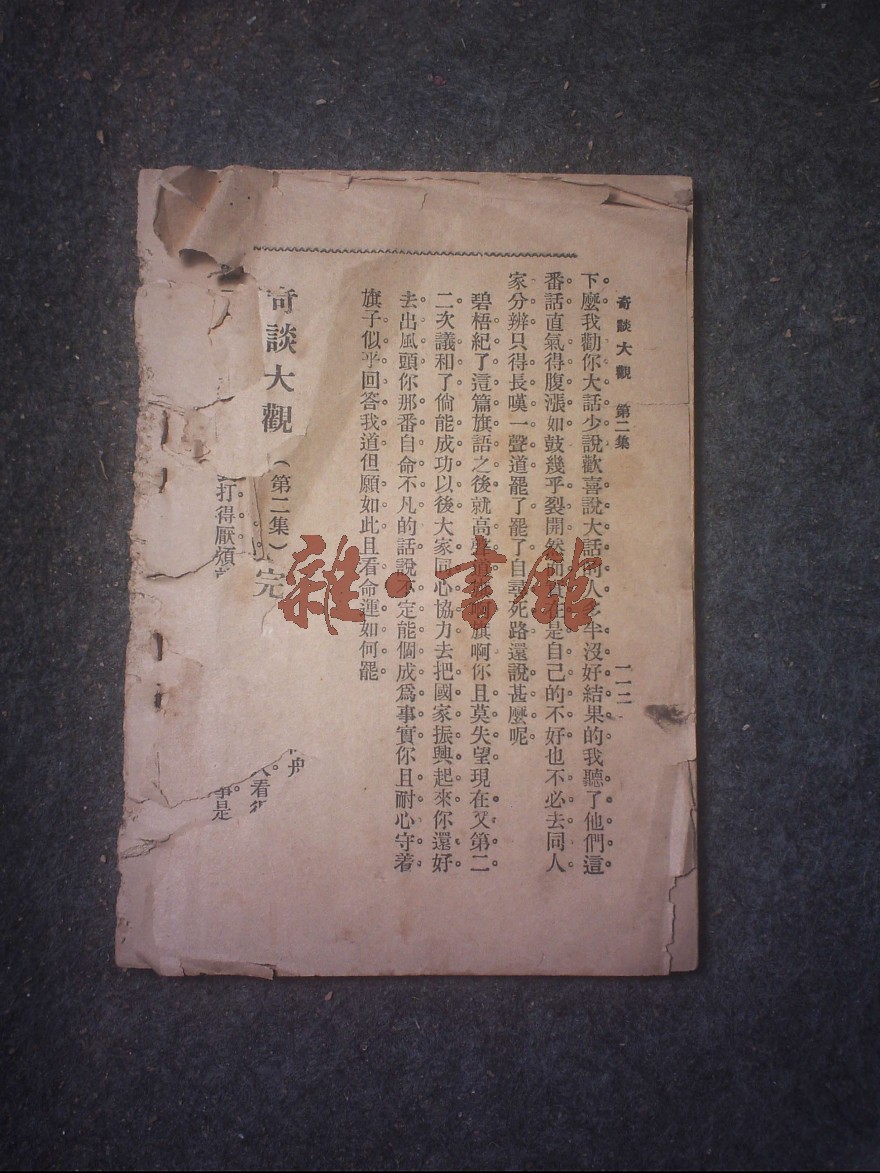 奇談大觀 第二集 一一二
下麼我勸你大話少說歡喜說大話的人多半沒好結果的我聽了他們這
番話直氣得腹漲如鼓幾乎裂開然而是自己的不好也不必去同人
家分辨只得長嘆一聲道罷了罷了自尋死路還說甚麼呢
碧梧紀了這篇旗語之後就高聲道旗啊旗啊你且莫失望現在又第二
二次議和了倘能成功以後大家同心協力去把國家振興起來你還好
去出風頭你那番自命不凡的話說不定能個成爲事實你且耐心守着
旗子似乎回答我道但願如此且看命運如何罷
奇談大觀(第二集)完
打得厭煩
看得
事是
雜·書館